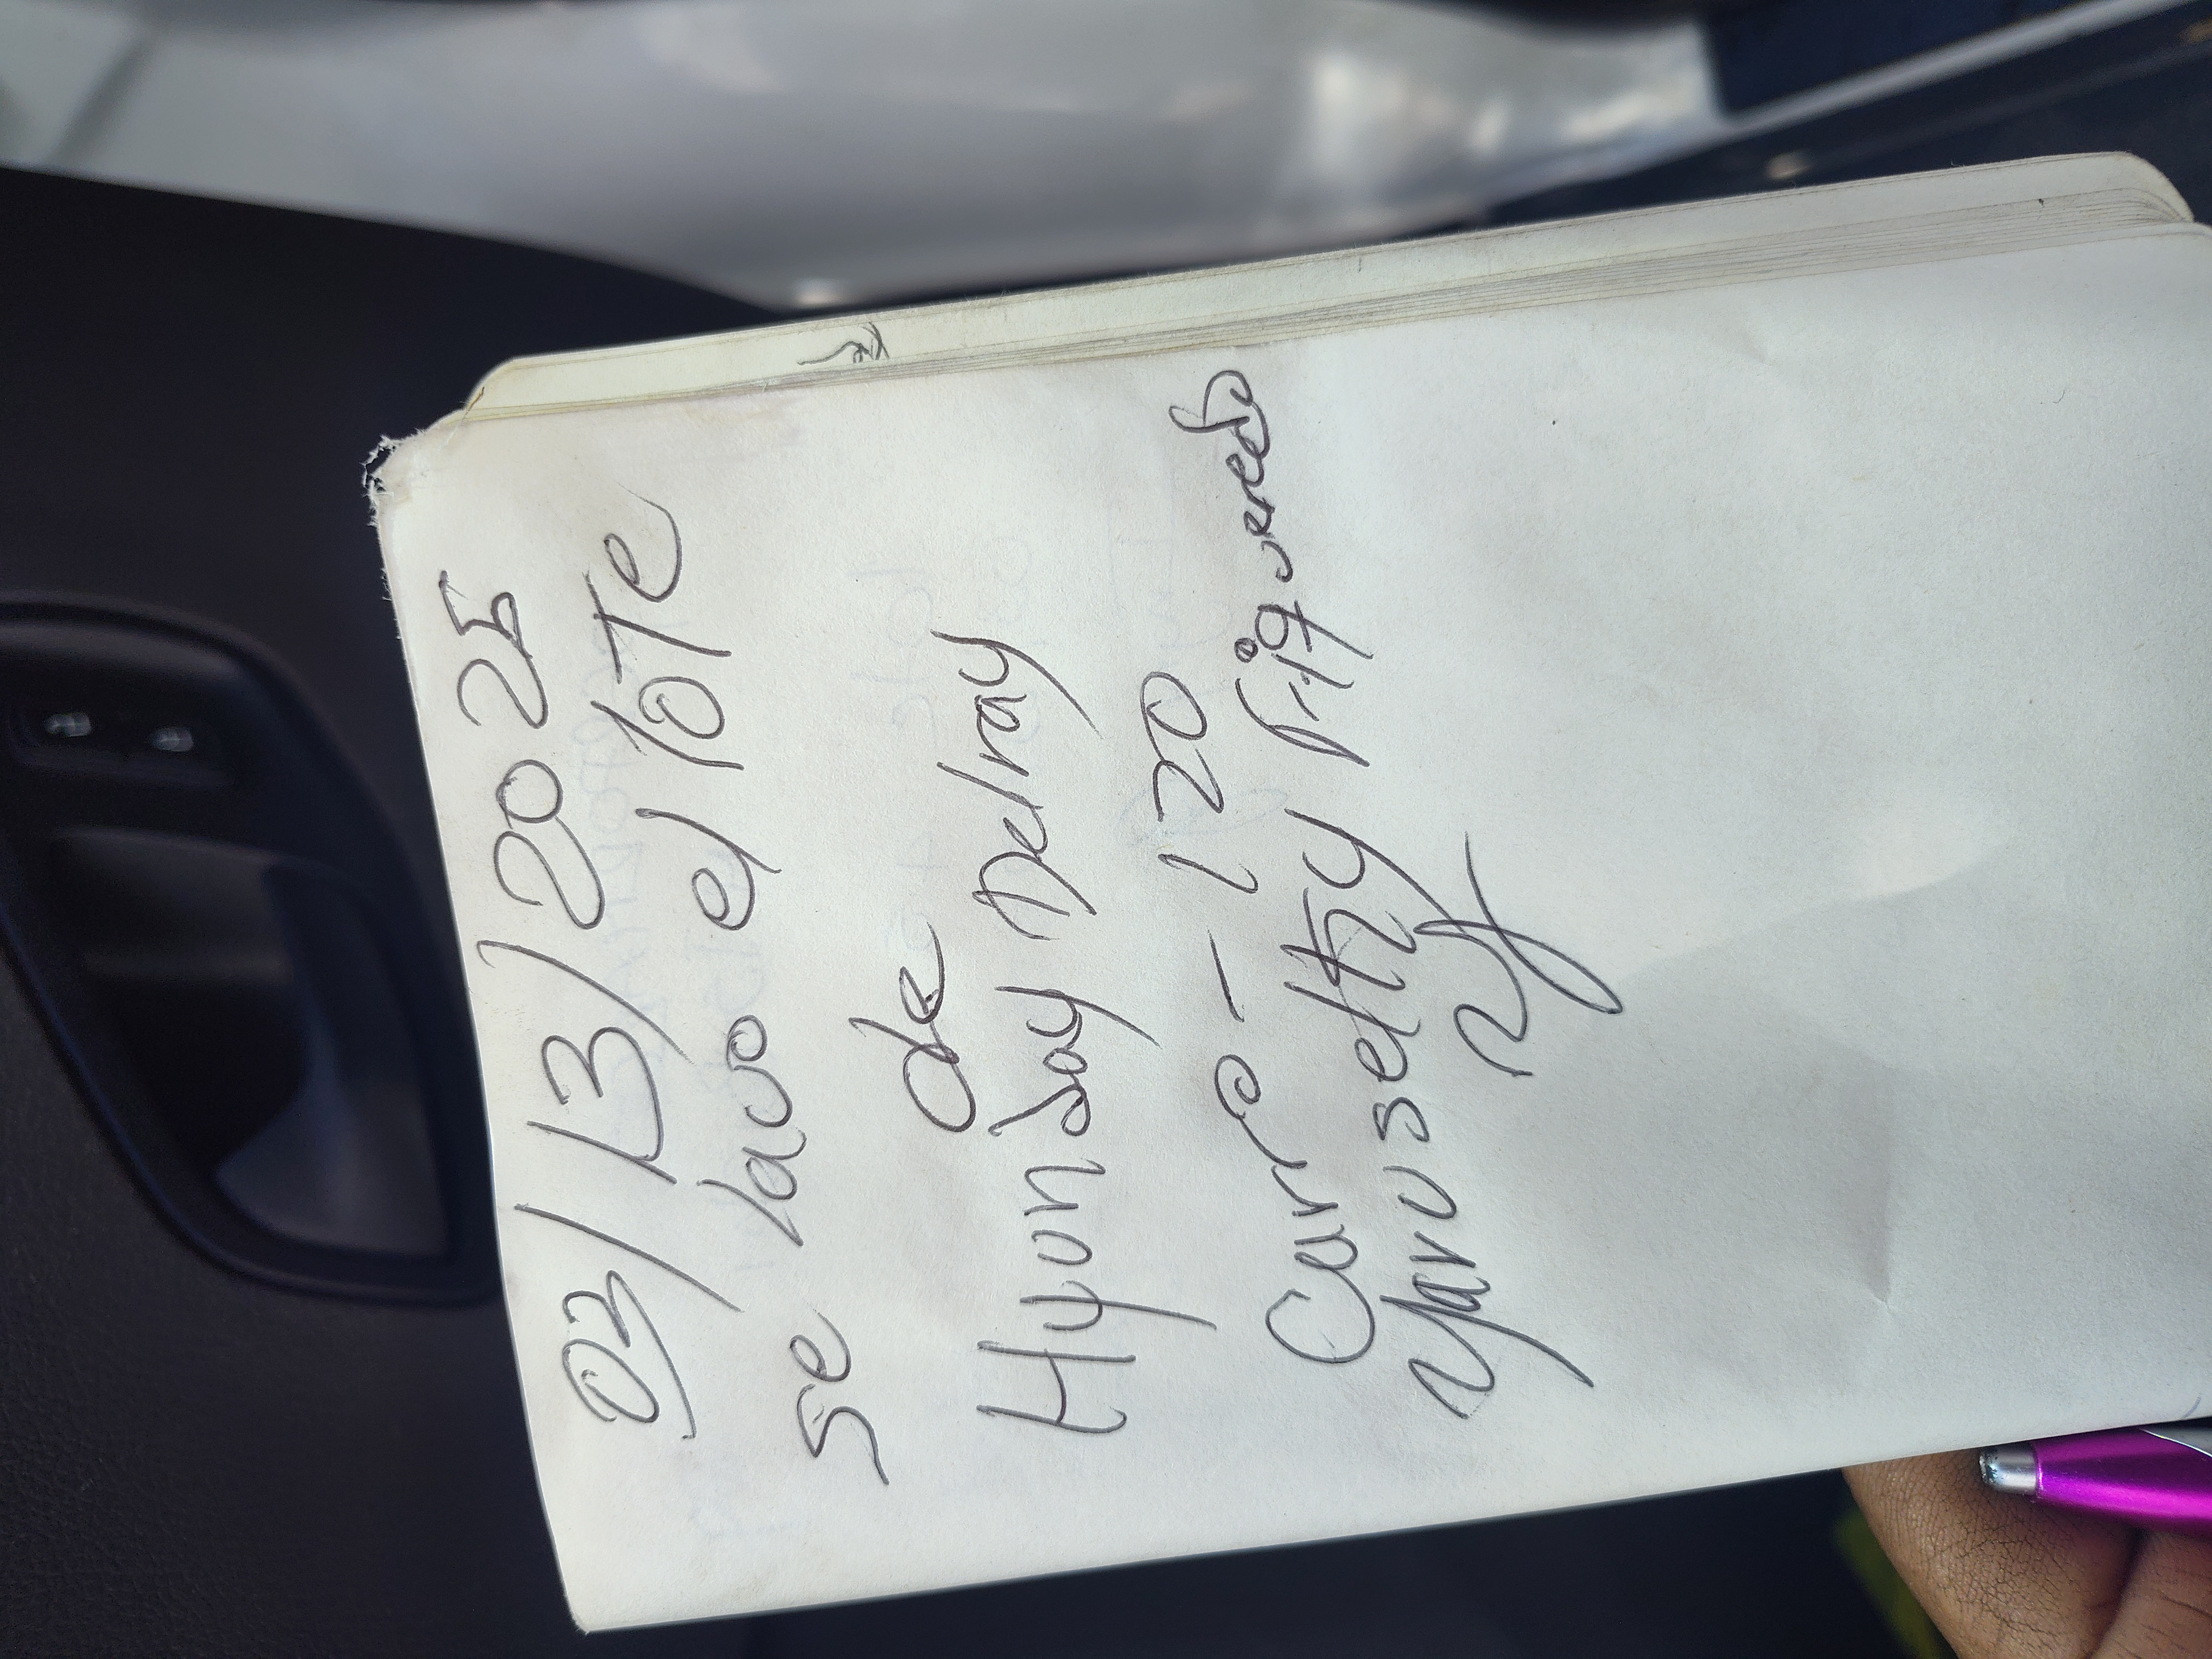 03/13/2025
se lavo el lote
de
Hyonday Delray
Carro - 120
Yaruseltzy Figueredo